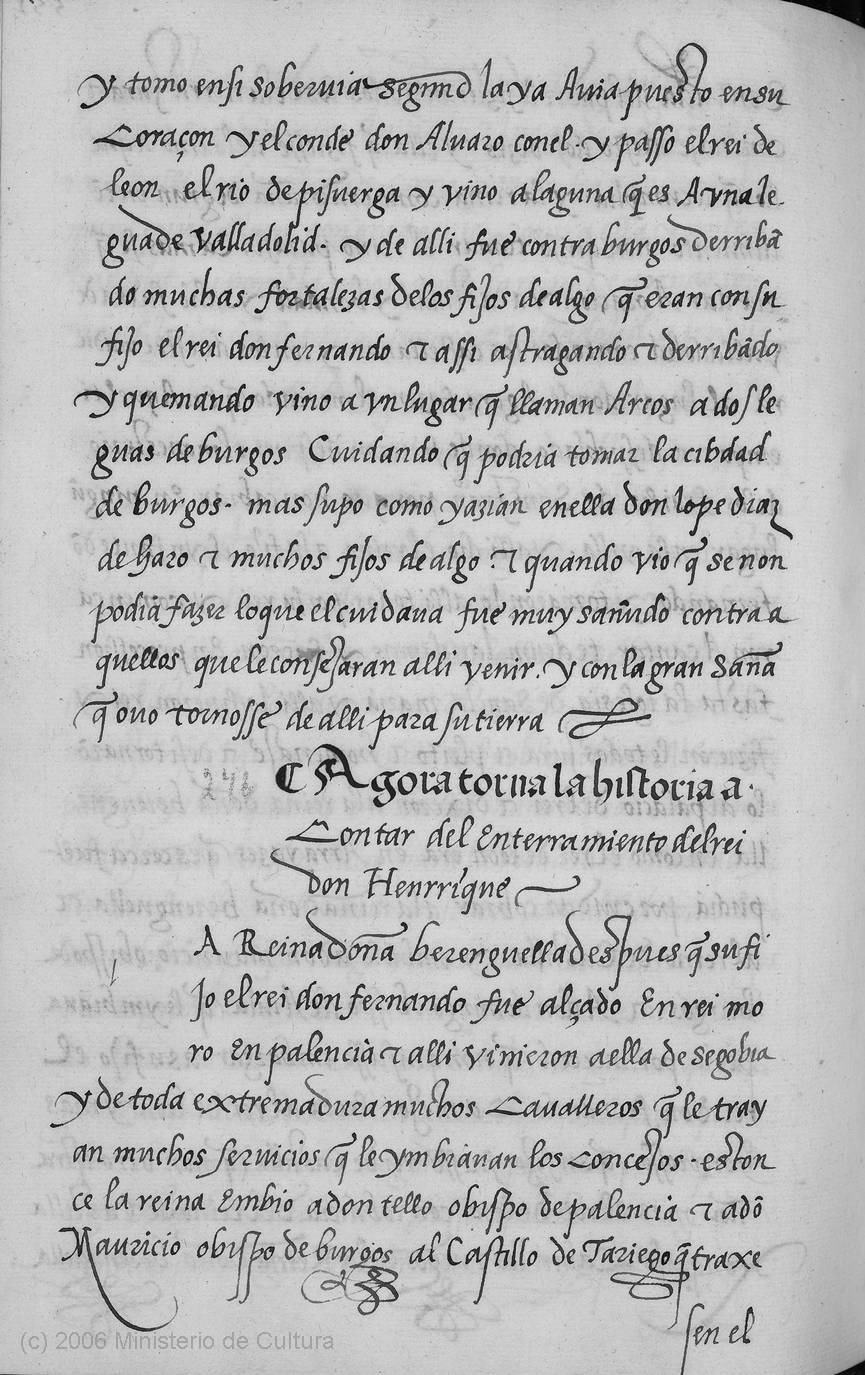 y tomo en si sobervia segund la ya Avia puesto en su
Coraçon y el conde don Alvaro con el. y passo el rei de
leon el rio de pisuerga y vino a laguna q̃ es A vna le
gua de Valladolid. y de alli fue contra burgos derribã
do muchas fortalezas de los fijos de algo q̃ eran con su
fijo el rei don fernando ⁊ assi astragando ⁊ derribãdo
y quemando vino a vn lugar q̃ llaman Arcos a dos le
guas de burgos Cuidando q̃ podria tomar la cibdad
de burgos. mas supo como yazian en ella don lope diaz
de haro ⁊ muchos fijos de algo. ⁊ quando vio q̃ se non
podia fazer lo que el cuidava fue muy sañudo contra a
quellos que le consejaran alli venir. y con la gran Saña
q̃ ovo tornosse de alli para su tierra
246 ¶ Agora torna la historia a.
Contar del Enterramiento del rei
don Henrrique
A Reina doña berenguella despues q̃ su fi
jo el rei don fernando fue alçado En rei mo
ro En palencia ⁊ alli vinieron a ella de segobia
y de toda extremadura muchos Cavalleros q̃ le tray
an muchos servicios q̃ le ymbiavan los Concejos. eston
ce la reina Embio a don tello obispo de palencia ⁊ a dõ
Mauricio obispo de burgos al Castillo de Tariego q̃ traxe
sen el
(c) 2006 Ministerio de Cultura